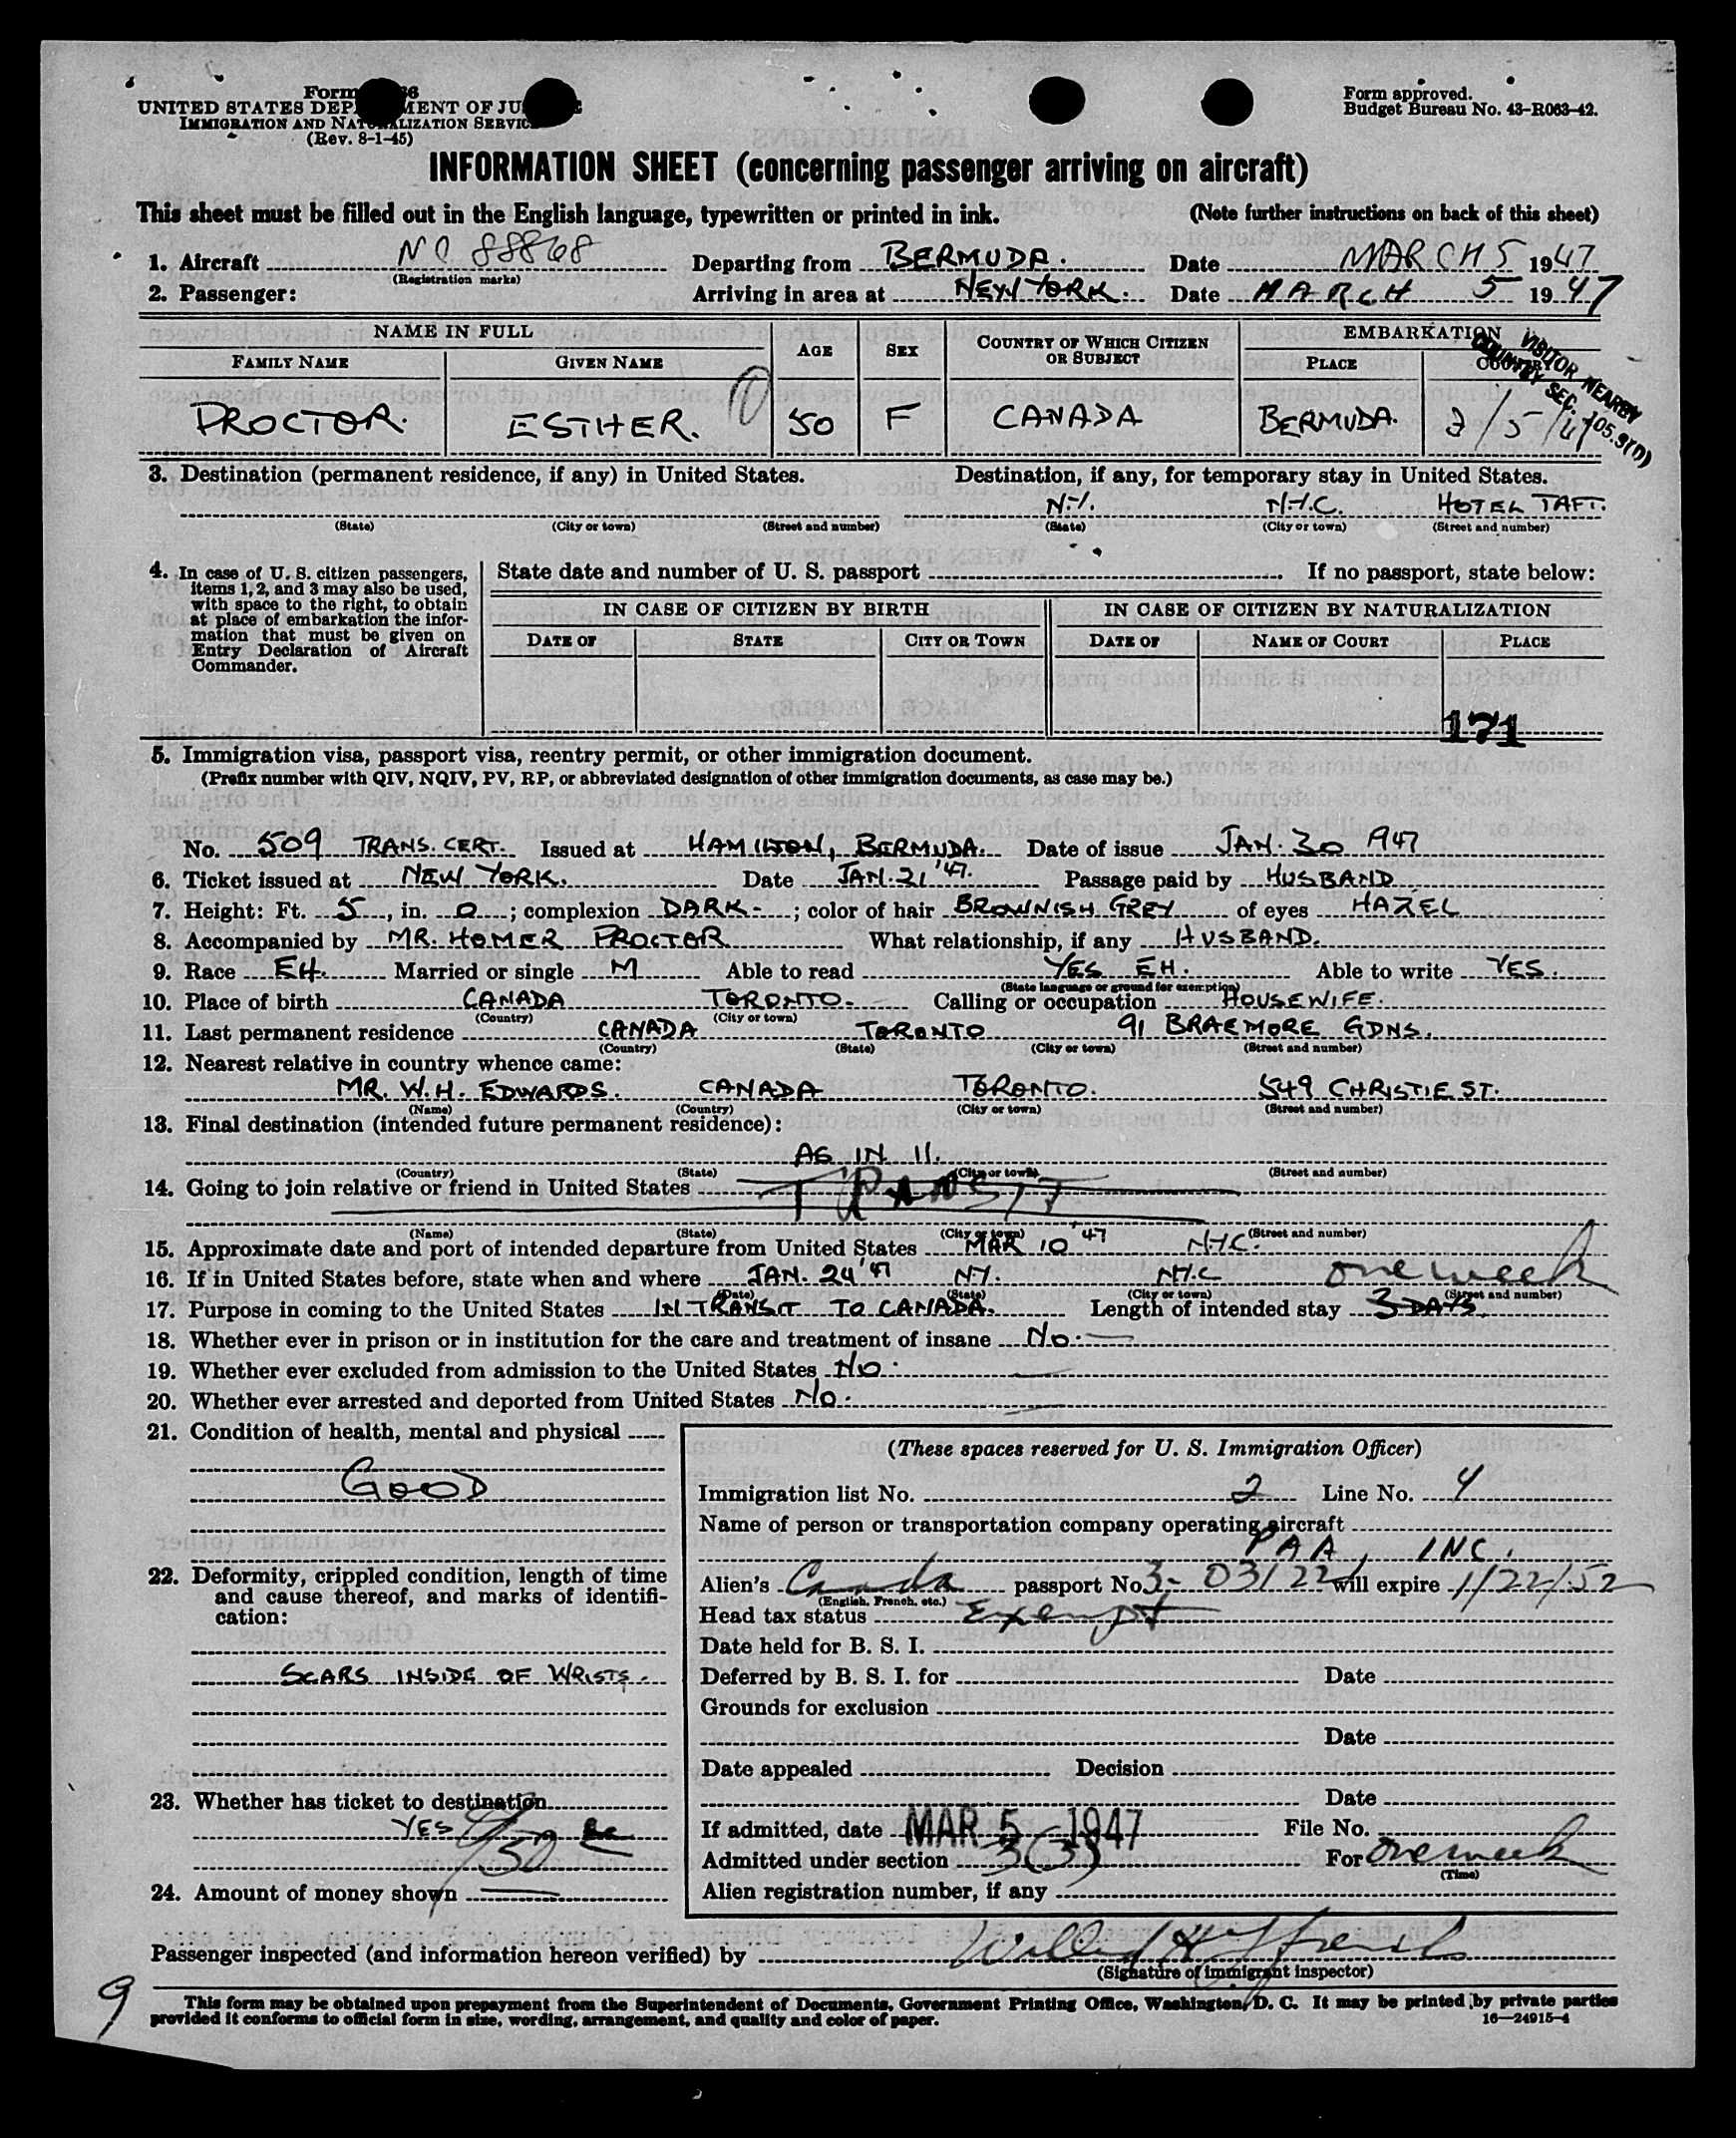 Form 66
UNITED STATES DEPARTMENT OF JUSTICE
IMMIGRATION AND NATURALIZATION SERVICE
(Rev. 8-1-45)
Form approved.
Budget Bureau No. 43-R063-42.
INFORMATION SHEET (concerning passenger arriving on aircraft)
This sheet must be filled out in the English language, typewritten or printed in ink. (Note further instructions on back of this sheet)
1. Aircraft NC 88868 Departing from BERMUDA. Date MARCH 5 1947
(Registration marks)
2. Passenger: Arriving in area at NEW YORK. Date MARCH 5 1947
NAME IN FULL AGE SEX COUNTRY OF WHICH CITIZEN OR SUBJECT EMBARKATION
FAMILY NAME GIVEN NAME PLACE
VISITOR NEARBY
COUNTRY SEC. 105.3(1)
PROCTOR. ESTHER. 50 F CANADA BERMUDA. 3/5/47
3. Destination (permanent residence, if any) in United States. Destination, if any, for temporary stay in United States.
N.Y. N.Y.C. HOTEL TAFT.
(State) (City or town) (Street and number) (State) (City or town) (Street and number)
4. In case of U. S. citizen passengers, items 1, 2, and 3 may also be used, with space to the right, to obtain at place of embarkation the information that must be given on Entry Declaration of Aircraft Commander.
State date and number of U. S. passport If no passport, state below:
IN CASE OF CITIZEN BY BIRTH IN CASE OF CITIZEN BY NATURALIZATION
DATE OF STATE CITY OR TOWN DATE OF NAME OF COURT PLACE
171
5. Immigration visa, passport visa, reentry permit, or other immigration document.
(Prefix number with QIV, NQIV, PV, RP, or abbreviated designation of other immigration documents, as case may be.)
No. 509 TRANS. CERT. Issued at HAMILTON, BERMUDA. Date of issue JAN. 30 1947
6. Ticket issued at NEW YORK. Date JAN. 21 '47. Passage paid by HUSBAND
7. Height: Ft. 5, in. 0; complexion DARK; color of hair BROWNISH GREY of eyes HAZEL
8. Accompanied by MR. HOMER PROCTOR What relationship, if any HUSBAND.
9. Race EH. Married or single M Able to read YES EH. Able to write YES.
(State language or ground for exemption)
10. Place of birth CANADA TORONTO. Calling or occupation HOUSEWIFE.
(Country) (City or town)
11. Last permanent residence CANADA TORONTO 91 BRAEMORE GDNS.
(Country) (State) (City or town) (Street and number)
12. Nearest relative in country whence came:
MR. W.H. EDWARDS. CANADA TORONTO. 549 CHRISTIE ST.
(Name) (Country) (City or town) (Street and number)
13. Final destination (intended future permanent residence):
AS IN 11.
(Country) (State) (City or town) (Street and number)
14. Going to join relative or friend in United States TRANSIT
(Name) (State) (City or town) (Street and number)
15. Approximate date and port of intended departure from United States MAR 10 '47 N.Y.C.
16. If in United States before, state when and where JAN. 24 '47 N.Y. N.Y.C one week
(Date) (State) (City or town) (Street and number)
17. Purpose in coming to the United States IN TRANSIT TO CANADA. Length of intended stay 3 DAYS.
18. Whether ever in prison or in institution for the care and treatment of insane NO.
19. Whether ever excluded from admission to the United States NO.
20. Whether ever arrested and deported from United States NO.
21. Condition of health, mental and physical
GOOD
22. Deformity, crippled condition, length of time and cause thereof, and marks of identification:
SCARS INSIDE OF WRISTS.
23. Whether has ticket to destination
YES
24. Amount of money shown
50
(These spaces reserved for U. S. Immigration Officer)
Immigration list No. 2 Line No. 4
Name of person or transportation company operating aircraft
PAA, INC.
Alien's Canada passport No. 3-03122 will expire 1/22/52
(English, French, etc.)
Head tax status Exempt
Date held for B. S. I.
Deferred by B. S. I. for Date
Grounds for exclusion
Date
Date appealed Decision
Date
If admitted, date MAR 5 1947 File No.
Admitted under section 3(3) For one week
(Time)
Alien registration number, if any
Passenger inspected (and information hereon verified) by
(Signature of immigrant inspector)
9
This form may be obtained upon prepayment from the Superintendent of Documents, Government Printing Office, Washington, D. C. It may be printed by private parties
provided it conforms to official form in size, wording, arrangement, and quality and color of paper.
16—24915-4